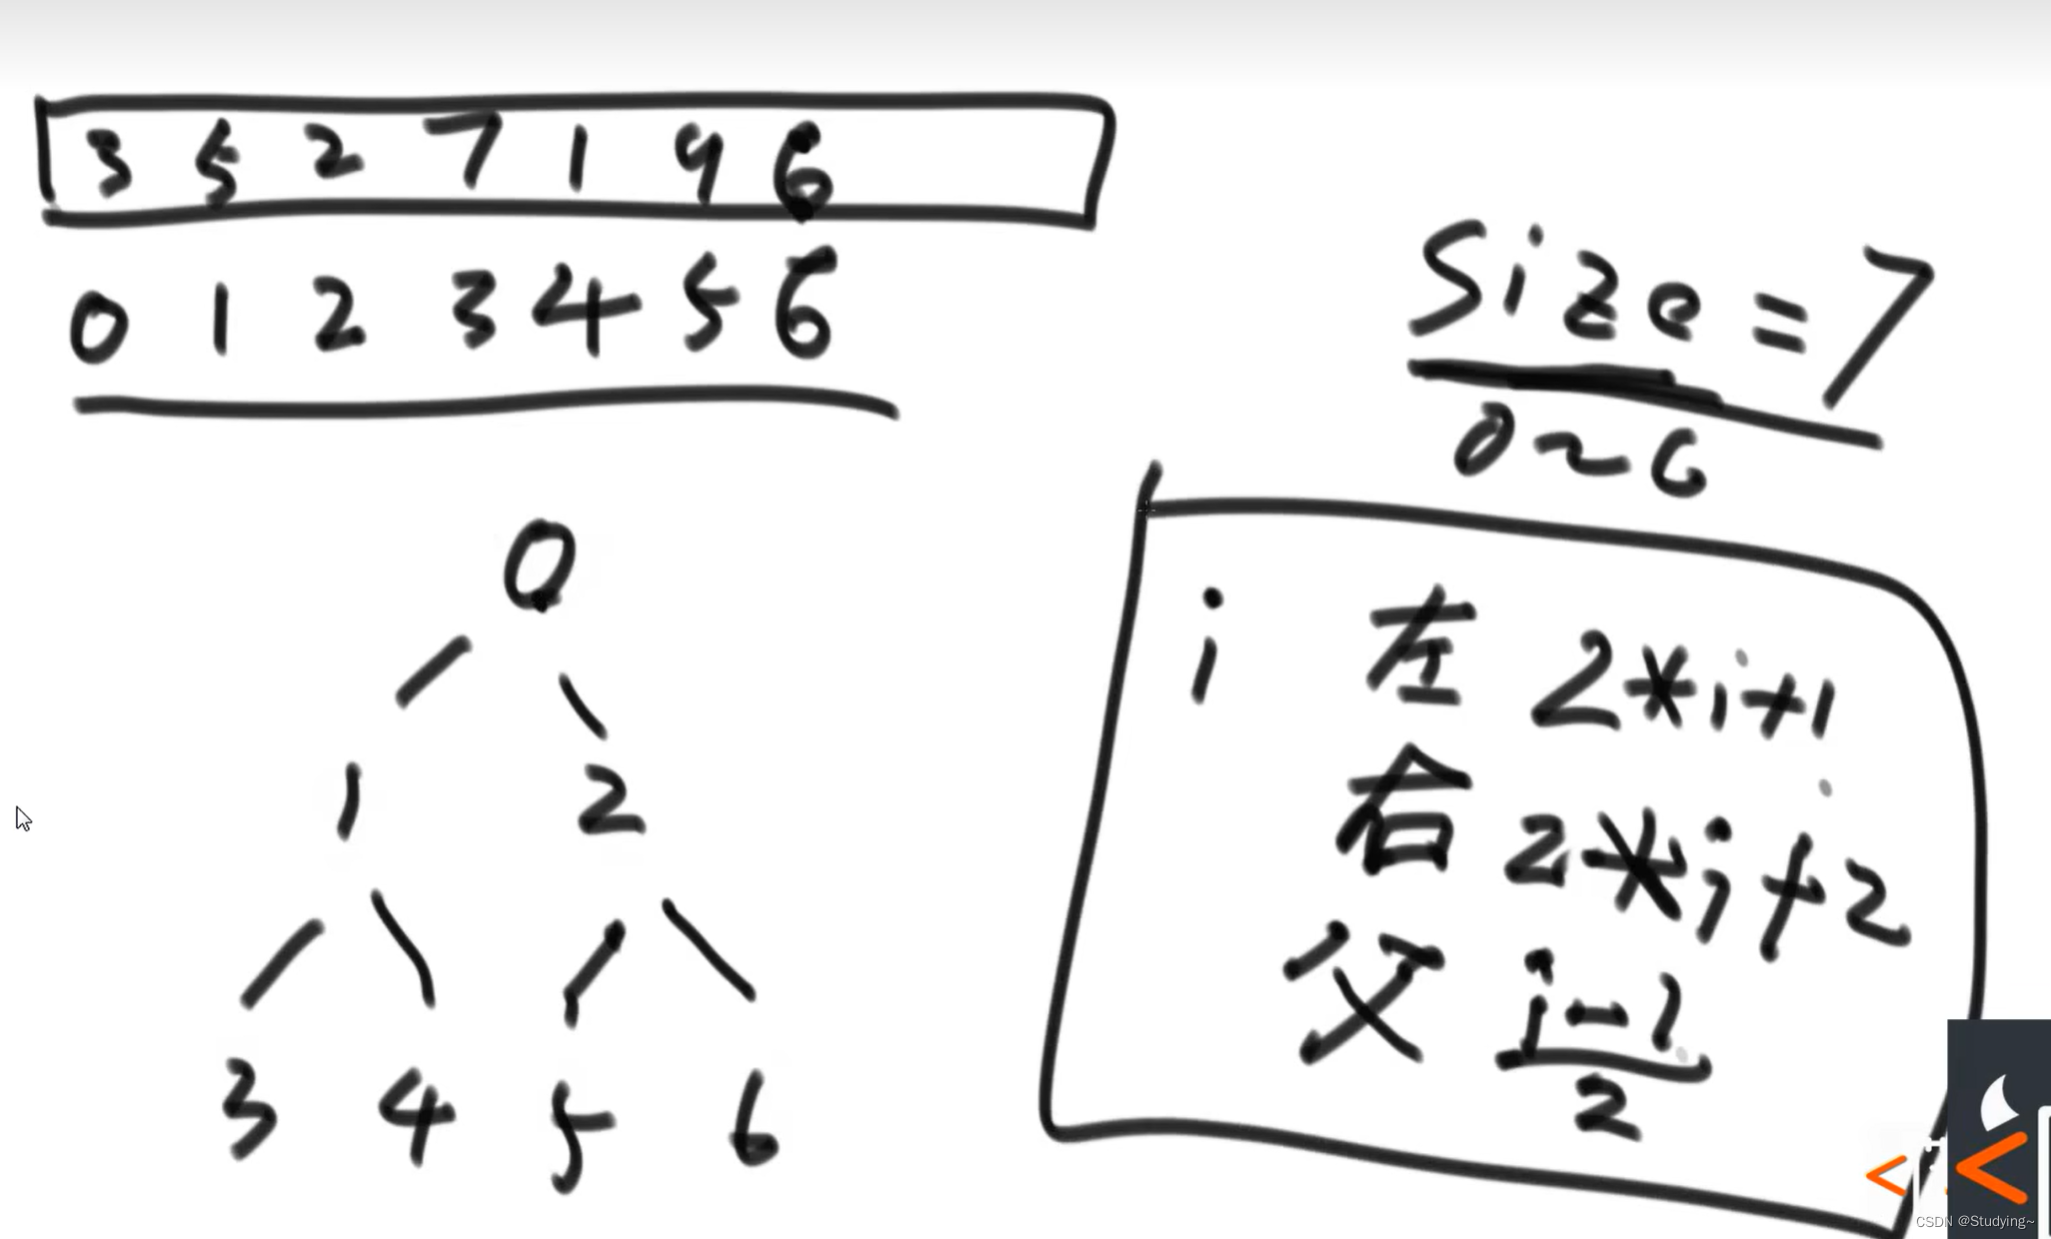 3 5 2 7 1 9 6
0 1 2 3 4 5 6
Size=7
0~6
0
1 2
3 4 5 6
i 左 2*i+1
右 2*i+2
父 i-1
2
CSDN @Studying~